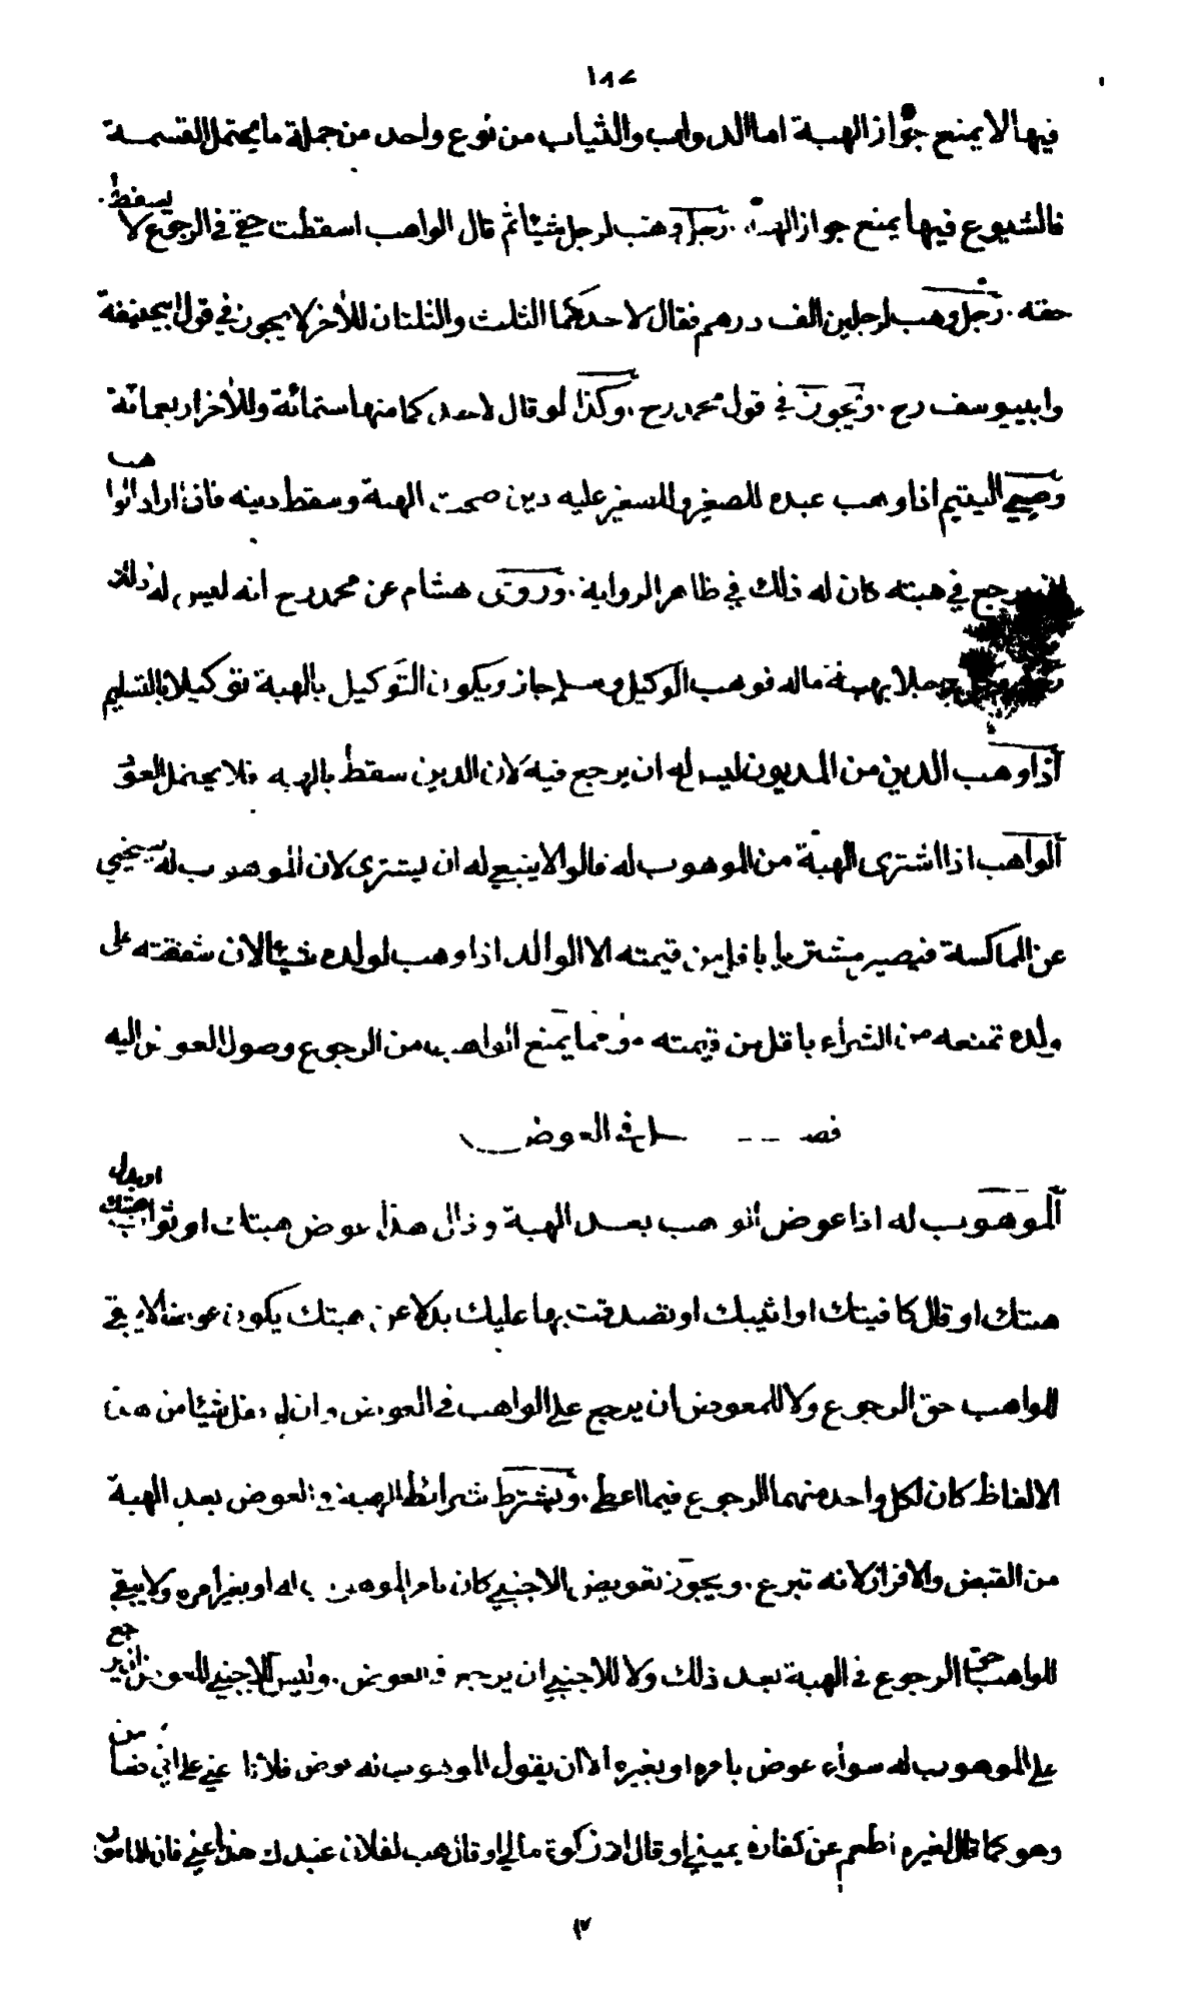 ١٨٧
فيها لا يمنع جواز الهبة اما الدواب والثياب من نوع واحد من جملة ما يحتمل القسمة
فالشيوع فيها يمنع جواز الهبة. رجل وهب لرجل شيئا ثم قال الواهب اسقطت حقي في الرجوع لا يسقط
حقه. رجل وهب لرجلين الف درهم فقال لاحدكما الثلث والثلثان للآخر لا يجوز في قول ابيحنيفة
وابييوسف رح. ويجوز في قول محمد رح. وكذا لو قال لاحدكما منها ستمائة وللآخر اربعمائة
وصي اليتيم اذا وهب عبده للصغير وللصغير عليه دين صحت الهبة وسقط دينه فان اراد الواهب
ان يرجع في هبته كان له ذلك في ظاهر الرواية. وروى هشام عن محمد رح انه ليس له ذلك
رجلا بهبة ماله فوهب الوكيل وسلم جاز ويكون التوكيل بالهبة توكيلا بالتسليم
اذا وهب الدين من المديون ليس له ان يرجع فيه لان الدين سقط بالهبة فلا يحتمل العود
الواهب اذا اشترى الهبة من الموهوب له قالوا لا ينبغي له ان يشترى لان الموهوب له يستحيي
عن المماكسة فيصير مشتريا باقل من قيمته الا الوالد اذا وهب لولده شيئا لان شفقته على
ولده تمنعه من الشراء باقل من قيمته. ومما يمنع الواهب من الرجوع وصول العوض اليه
فصل في العوض
الموهوب له اذا عوض الواهب بعد الهبة وقال هذا عوض هبتك او ثواب هبتك او بدل
هبتك او قال كافيتك او اثيبك او تصدقت بها عليك بدلا عن هبتك يكون عوضا لا يبقى
للواهب حق الرجوع ولا للمعوض ان يرجع على الواهب في العوض وان لم يقل شيئا من هذه
الالفاظ كان لكل واحد منهما الرجوع فيما اعطى. ويشترط شرائط الهبة في العوض بعد الهبة
من القبض والافراز لانه تبرع. ويجوز تعويض الاجنبي كان بامر الموهوب له او بغير امره ولا يبقى
للواهب حق الرجوع في الهبة بعد ذلك ولا للاجنبي ان يرجع في العوض. وليس للاجنبي المعوض ان يرجع
على الموهوب له سواء عوض بامره او بغيره الا ان يقول الموهوب له عوض فلانا عني على اني ضامن
وهو كما قال لغيره اطعم عن كفارة يميني او قال اد زكوة مالي او قال هب لفلان عبدك هذا عني فان المامور